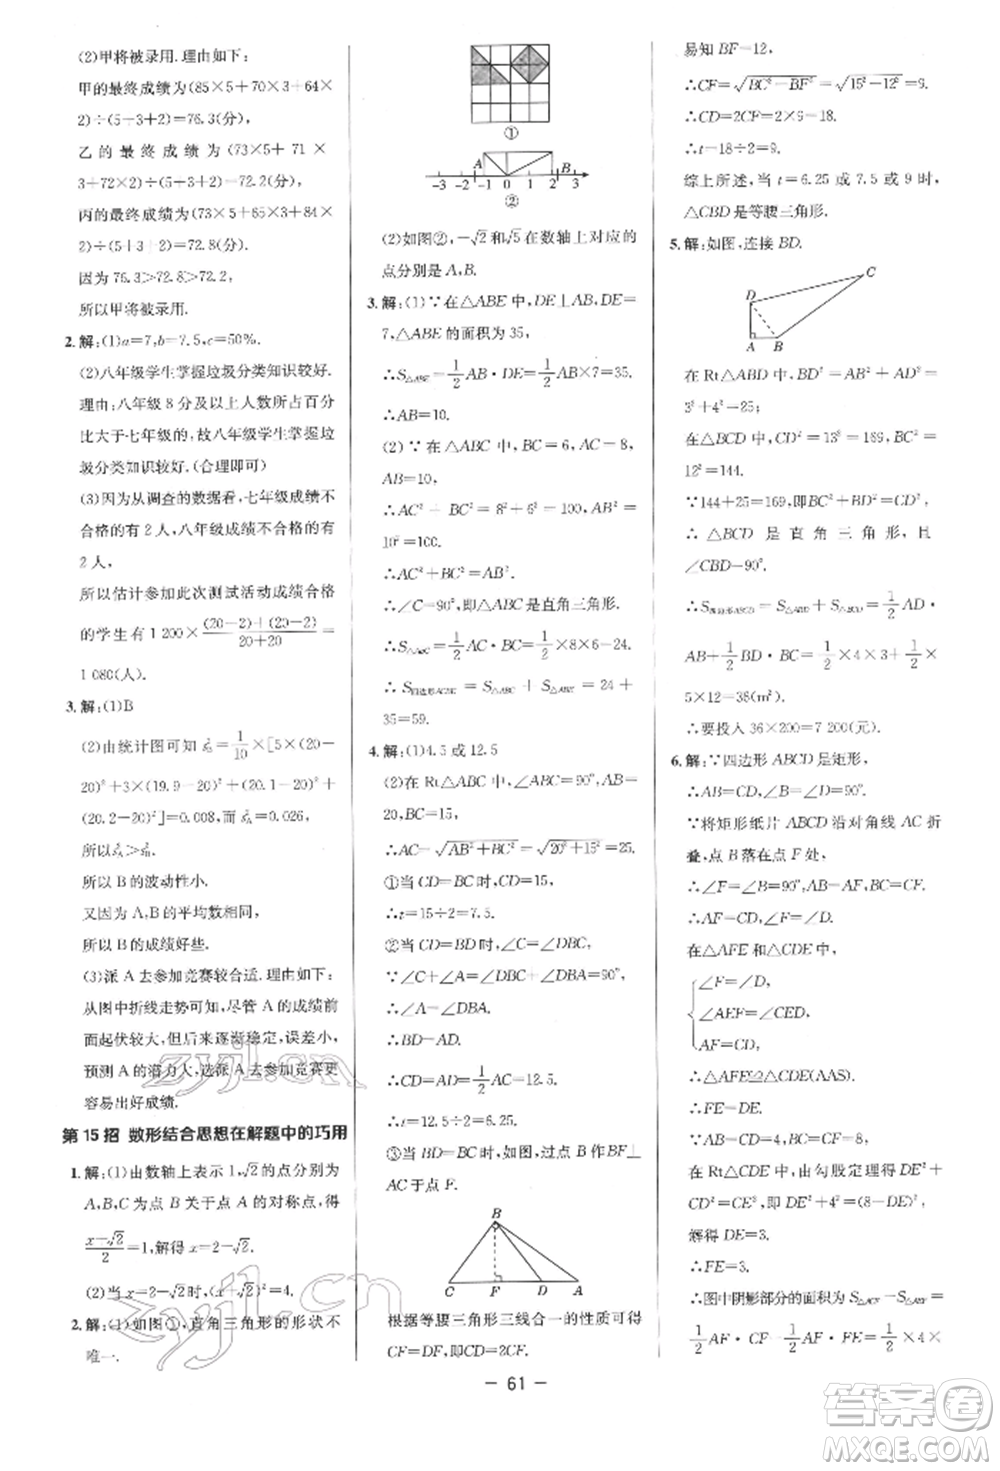 (2)甲将被录用.理由如下:
甲的最终成绩为(85×5+70×3+64×
2)÷(5+3+2)=76.3(分),
乙的最终成绩为(73×5+71×
3+72×2)÷(5+3+2)=72.2(分),
丙的最终成绩为(73×5+65×3+84×
2)÷(5+3+2)=72.8(分).
因为76.3>72.8>72.2,
所以甲将被录用.
2.解:(1)a=7,b=7.5,c=50%.
(2)八年级学生掌握垃圾分类知识较好.
理由:八年级8分及以上人数所占百分
比大于七年级,故八年级学生掌握垃
圾分类知识较好.(合理即可)
(3)因为从调查的数据看,七年级成绩不
合格的有2人,八年级成绩不合格的有
2人,
所以估计参加此次测试活动成绩合格
的学生有1 200×(20-2)+(20-2)/20+20=
1 080(人).
3.解:(1)B
(2)由统计图可知s²B=1/10×[5×(20-
20)²+3×(19.9-20)²+(20.1-20)²+
(20.2-20)²]=0.008,而s²A=0.026,
所以s²A>s²B.
所以B的波动性小.
又因为A,B的平均数相同,
所以B的成绩好些.
(3)派A去参加竞赛较合适.理由如下:
从图中折线走势可知,尽管A的成绩前
面起伏较大,但后来逐渐稳定,误差小,
预测A的潜力大,选派A去参加竞赛更
容易出好成绩.
第15招 数形结合思想在解题中的巧用
1.解:(1)由数轴上表示1,√2的点分别为
A,B,C为点B关于点A的对称点,得
x+√2/2=1,解得x=2-√2.
(2)当x=2-√2时,(x+√2)²=4.
2.解:(1)如图①,直角三角形的形状不
唯一.
①
A B
-3 -2 -1 0 1 2 3
②
(2)如图②,-√2和√5在数轴上对应的
点分别是A,B.
3.解:(1)∵在△ABE中,DE⊥AB,DE=
7,△ABE的面积为35,
∴S△ABE=1/2AB·DE=1/2AB×7=35.
∴AB=10.
(2)∵在△ABC中,BC=6,AC=8,
AB=10,
∴AC²+BC²=8²+6²=100,AB²=
10²=100.
∴AC²+BC²=AB².
∴∠C=90°,即△ABC是直角三角形.
∴S△ABC=1/2AC·BC=1/2×8×6=24.
∴S四边形ACBE=S△ABC+S△ABE=24+
35=59.
4.解:(1)4.5或12.5
(2)在Rt△ABC中,∠ABC=90°,AB=
20,BC=15,
∴AC=√AB²+BC²=√20²+15²=25.
①当CD=BC时,CD=15,
∴t=15÷2=7.5.
②当CD=BD时,∠C=∠DBC.
∵∠C+∠A=∠DBC+∠DBA=90°,
∴∠A=∠DBA.
∴BD=AD.
∴CD=AD=1/2AC=12.5.
∴t=12.5÷2=6.25.
③当BD=BC时,如图,过点B作BF⊥
AC于点F.
B
C F D A
根据等腰三角形三线合一的性质可得
CF=DF,即CD=2CF.
易知BF=12,
∴CF=√BC²-BF²=√15²-12²=9.
∴CD=2CF=2×9=18.
∴t=18÷2=9.
综上所述,当t=6.25或7.5或9时,
△CBD是等腰三角形.
5.解:如图,连接BD.
C
D
A B
在Rt△ABD中,BD²=AB²+AD²=
3²+4²=25;
在△BCD中,CD²=13²=169,BC²=
12²=144.
∵144+25=169,即BC²+BD²=CD²,
∴△BCD是直角三角形,且
∠CBD=90°.
∴S四边形ABCD=S△ABD+S△BCD=1/2AD·
AB+1/2BD·BC=1/2×4×3+1/2×
5×12=36(m²).
∴要投入36×200=7 200(元).
6.解:∵四边形ABCD是矩形,
∴AB=CD,∠B=∠D=90°.
∵将矩形纸片ABCD沿对角线AC折
叠,点B落在点F处,
∴∠F=∠B=90°,AB=AF.
∴AF=CD,∠F=∠D.
在△AFE和△CDE中,
∠F=∠D,
∠AEF=∠CED,
AF=CD,
∴△AFE≌△CDE(AAS).
∴FE=DE.
∵AB=CD=4,BC=AD=8,
在Rt△CDE中,由勾股定理得DE²+
CD²=CE²,即DE²+4²=(8-DE)²,
解得DE=3.
∴FE=3.
∴图中阴影部分的面积为S△ACF-S△AEF=
1/2AF·CF-1/2AF·FE=1/2×4×
- 61 -
zyjl.cn
zyjl.cn
答案圈
MXQE.COM